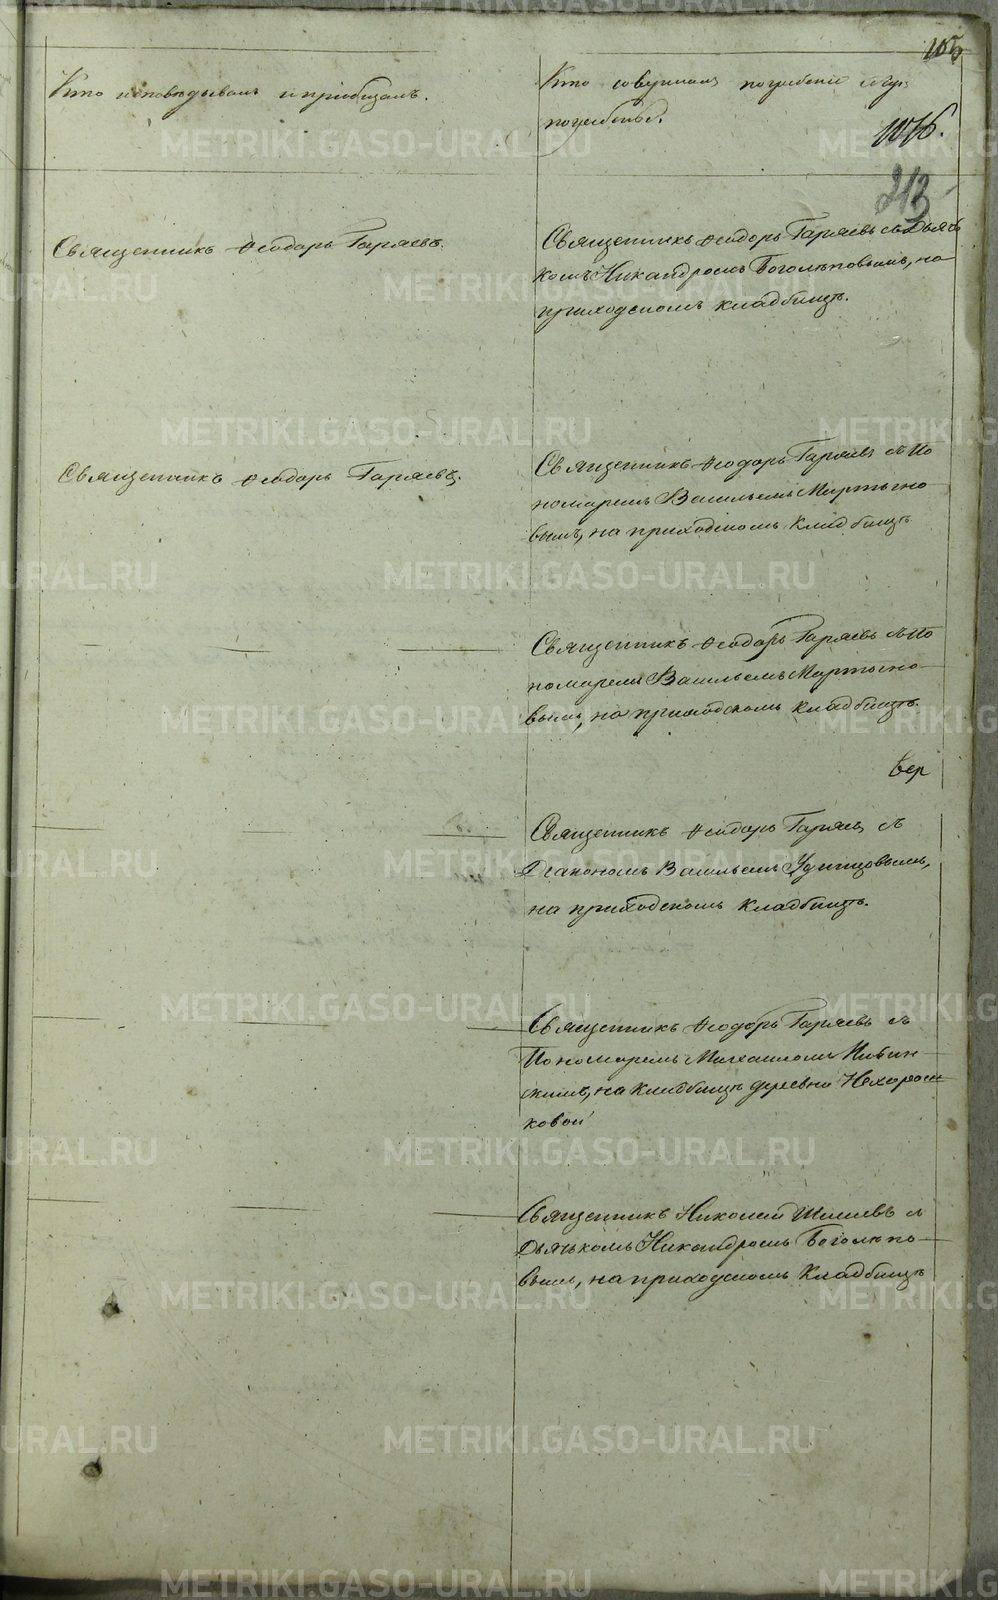 Кто исповѣдывалъ и пріобщалъ.
Кто совершалъ погребеніе и гдѣ
погребены.
1076.
213
Священникъ Ѳеодоръ Гаряевъ.
Священникъ Ѳеодоръ Гаряевъ съ Дьяч
комъ Никандромъ Боголѣповымъ, на
приходскомъ кладбищѣ.
Священникъ Ѳеодоръ Гаряевъ.
Священникъ Ѳеодоръ Гаряевъ съ По
номаремъ Васильемъ Мартыно
вымъ, на приходскомъ кладбищѣ
Священникъ Ѳеодоръ Гаряевъ съ По
номаремъ Васильемъ Мартыно
вымъ, на приходскомъ кладбищѣ.
Священникъ Ѳеодоръ Гаряевъ съ
Діакономъ Васильемъ Удинцовымъ,
на приходскомъ кладбищѣ.
Священникъ Ѳеодоръ Гаряевъ съ
Пономаремъ Михаиломъ
на кладбищѣ деревни Нехорош
ковой
Священникъ Николай съ
Дьячкомъ Никандромъ Боголѣпо
вымъ, на приходскомъ кладбищѣ
METRIKI.GASO-URAL.RU